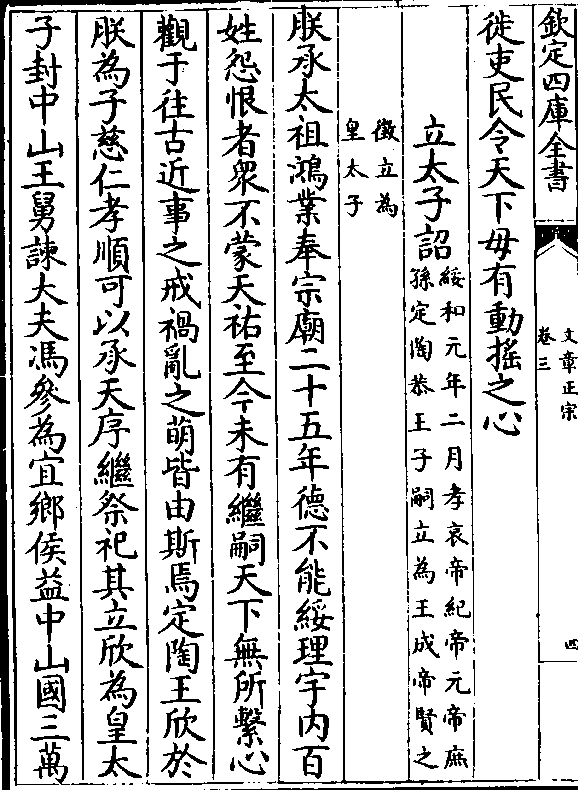 欽定四庫全書
文章正宗
卷三
四
徙吏民令天下毋有動搖之心
立太子詔
綏和元年二月孝哀帝紀帝元帝庶
孫定陶恭王子嗣立為王成帝賢之
徵立為
皇太子
朕承太祖鴻業奉宗廟二十五年德不能綏理宇内百
姓怨恨者衆不蒙天祐至今未有繼嗣天下無所繫心
觀于往古近事之戒禍亂之萌皆由斯焉定陶王欣於
朕為子慈仁孝順可以承天序繼祭祀其立欣為皇太
子封中山王舅諫大夫馮參為宜鄉侯益中山國三萬